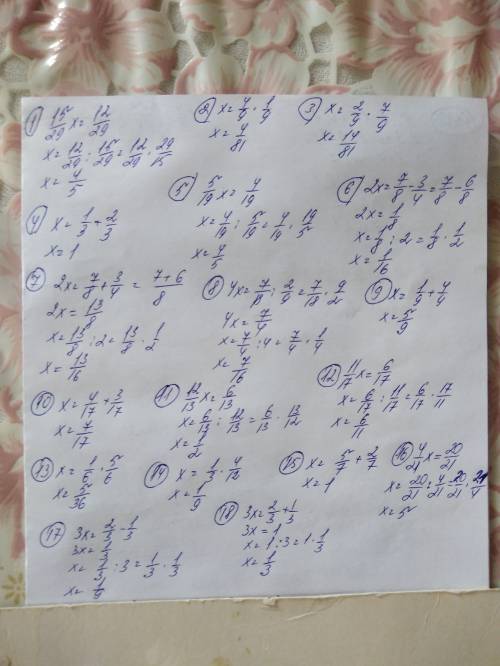 ① 15/29 x = 12/29
x = 12/29 : 15/29 = 12/29 · 29/15
x = 4/5
② x = 4/9 · 1/9
x = 4/81
③ x = 2/9 · 7/9
x = 14/81
④ x = 1/3 + 2/3
x = 1
⑤ 5/19 x = 4/19
x = 4/19 : 5/19 = 4/19 · 19/5
x = 4/5
⑥ 2x = 7/8 - 3/4 = 7/8 - 6/8
2x = 1/8
x = 1/8 : 2 = 1/8 · 1/2
x = 1/16
⑦ 2x = 7/8 + 3/4 = 7+6/8
2x = 13/8
x = 13/8 : 2 = 13/8 · 1/2
x = 13/16
⑧ 4x = 7/18 : 2/9 = 7/18 · 9/2
4x = 7/4
x = 7/4 : 4 = 7/4 · 1/4
x = 7/16
⑨ x = 1/9 + 4/9
x = 5/9
⑩ x = 4/17 + 3/17
x = 7/17
⑪ 12/13 x = 6/13
x = 6/13 : 12/13 = 6/13 · 13/12
x = 1/2
⑫ 11/17 x = 6/17
x = 6/17 : 11/17 = 6/17 · 17/11
x = 6/11
⑬ x = 1/6 · 5/6
x = 5/36
⑭ x = 1/3 · 4/12
x = 1/9
⑮ x = 5/7 + 2/7
x = 1
⑯ 4/21 x = 20/21
x = 20/21 : 4/21 = 20/21 · 21/4
x = 5
⑰ 3x = 2/3 - 1/3
3x = 1/3
x = 1/3 : 3 = 1/3 · 1/3
x = 1/9
⑱ 3x = 2/3 + 1/3
3x = 1
x = 1 : 3 = 1 · 1/3
x = 1/3